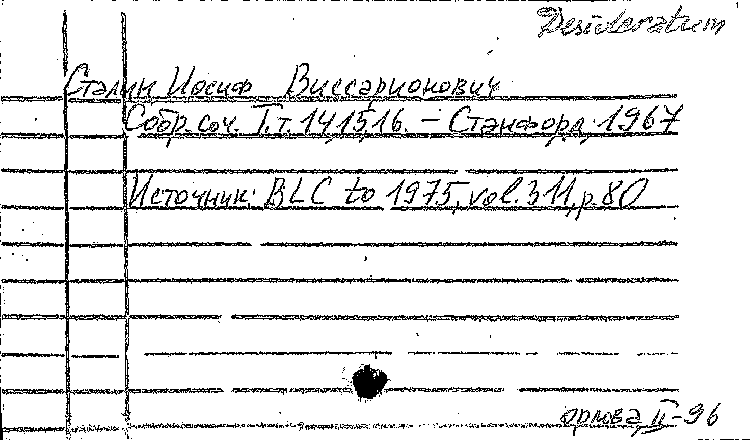 Desideratum
Сталин Иосиф Виссарионович
Собр. соч. Т.т. 14,15,16. – Станфорд, 1967
Источник: BLC to 1975, vol. 311, p. 80
орлова, II-96